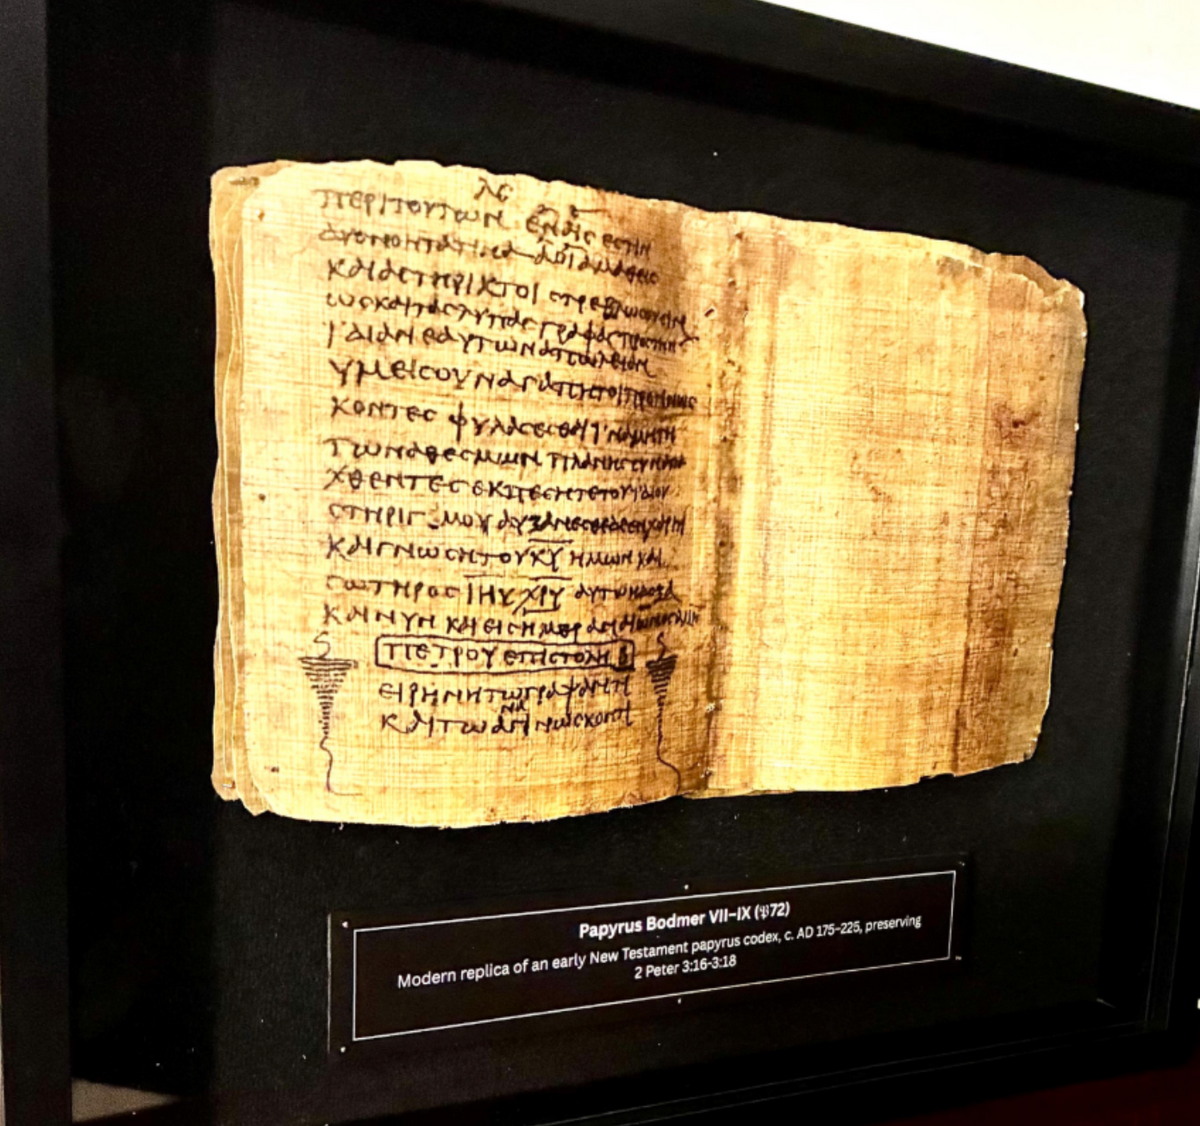 λϛ
ΠΕΡΙΤΟΥΤΩΝ ΕΝΑΙϹ ΕϹΤΙΝ
ΔΥϹΝΟΗΤΑΤΙΝΑ ΑΟΙΑΜΑΘΕΙϹ
ΚΑΙΑϹΤΗΡΙΚΤΟΙ
ΩϹΚΑΙΤΑϹΛΥΠΑϹΓΡΑΦΑϹΠΡΟϹΤΗΝ
ΪΔΙΑΝΕΑΥΤΩΝΑΠΩΛΕΙΑΝ
ΥΜΕΙϹΟΥΝΑΓΑΠΗΤΟΙΠΡΟΓΙΝΩϹ
ΚΟΝΤΕϹ ΦΥΛΑϹϹΕϹΘΑΙΪΝΑΜΗΤΗ
ΤΩΝΑΘΕϹΜΩΝ ΠΛΑΝΗϹΥΝΑΠΑ
ΧΘΕΝΤΕϹΕΚΠΕϹΗΤΕΤΟΥΪΔΙΟΥ
ϹΤΗΡΙΓΜΟΥ ΧΑΡΙΤΙ
ΚΑΙΓΝΩϹΗΤΟΥΚΥ ΗΜΩΝ ΚΑΙ
ϹΩΤΗΡΟϹ ΙΗΥ ΧΡΥ ΑΥΤΩΗΔΟΞΑ
ΚΑΙΝΥΝ ΚΑΙΕΙϹΗΜΕΡΑΝΑΙΩΝΟϹ
ΠΕΤΡΟΥ ΕΠΙϹΤΟΛΗ Β
ΕΙΡΗΝΗΤΩΓΡΑΨΑΝΤΙ
ΚΑΙΤΩΑΝΑΓΙΝΩϹΚΟΝΤΙ
Papyrus Bodmer VII–IX (𝔓72)
Modern replica of an early New Testament papyrus codex, c. AD 175–225, preserving
2 Peter 3:16-3:18